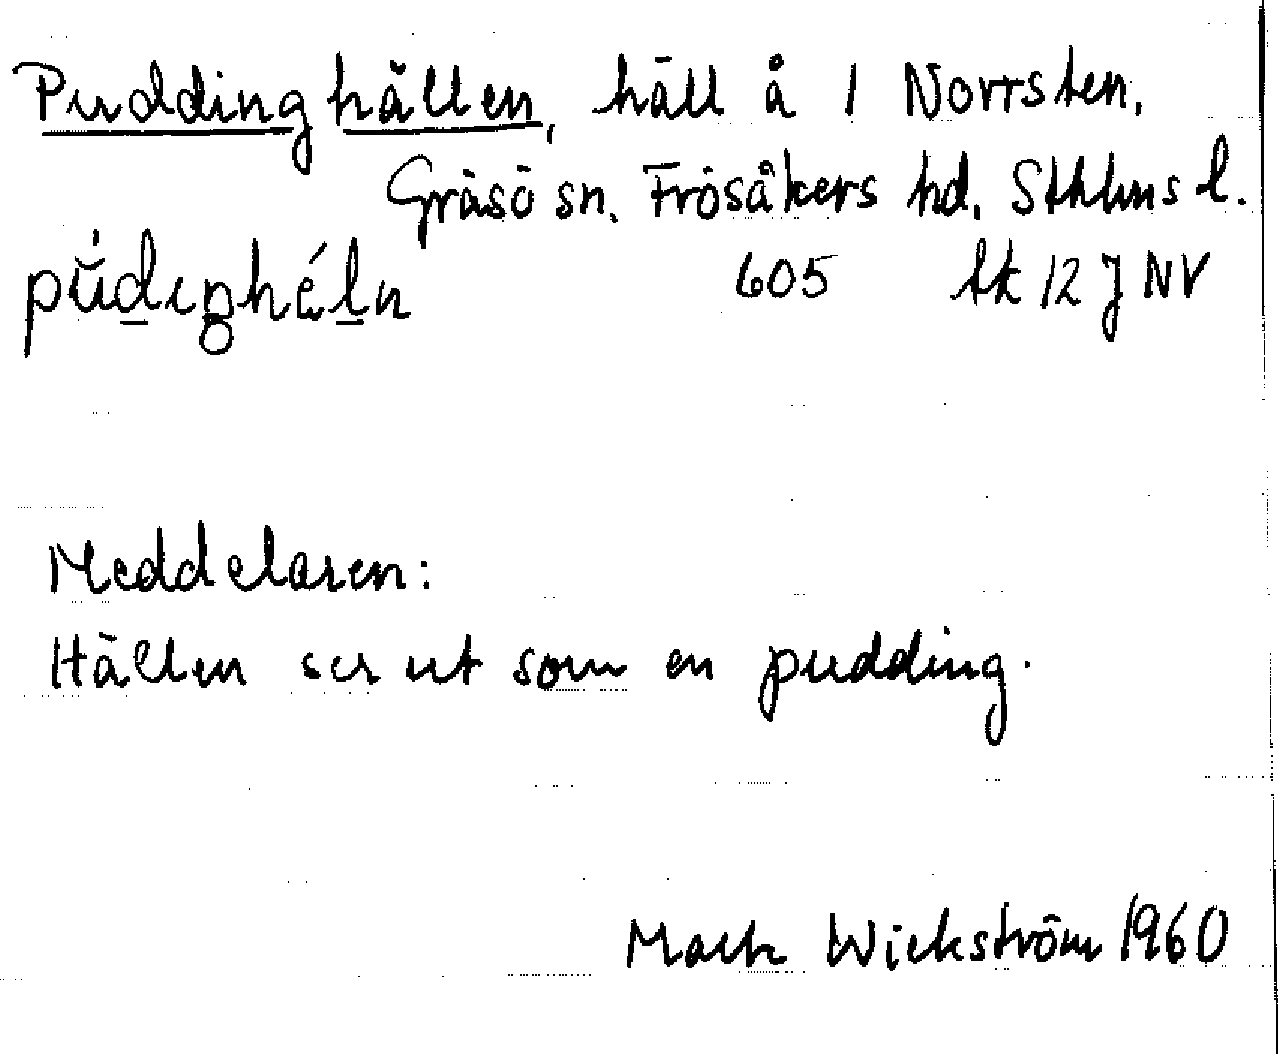 Puddinghällen, häll å 1 Norrsten,
Gräsö sn. Frösåkers hd. Sthlms l.
605 tk 12 J NV
Meddelaren:
Hällen ser ut som en pudding.
Wickström 1960